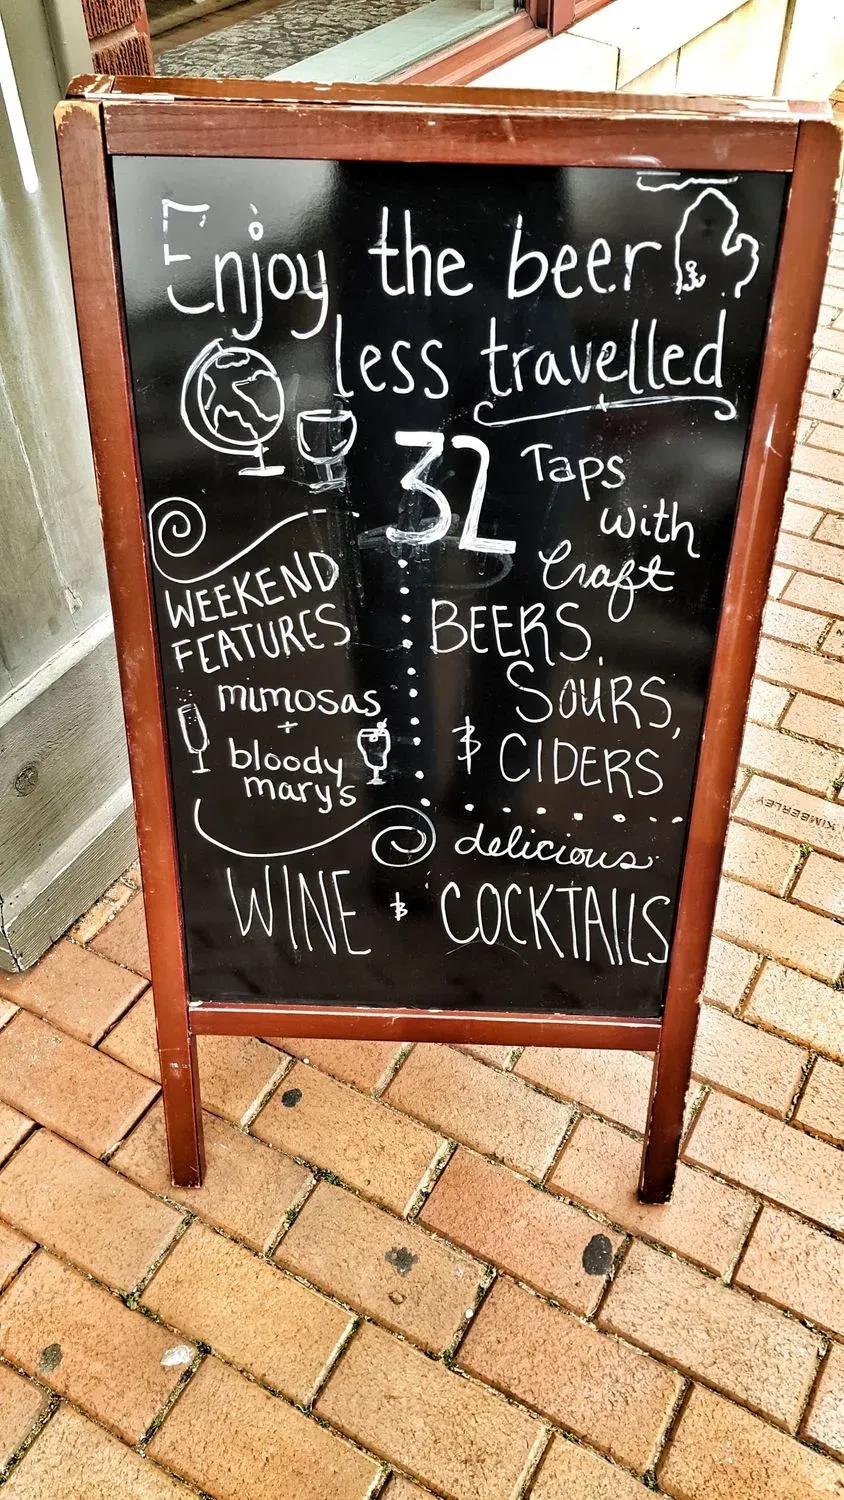 Enjoy the beer
less travelled
32 Taps
with
Craft
BEERS,
SOURS,
& CIDERS
WEEKEND
FEATURES
mimosas
+
bloody
mary's
delicious
WINE & COCKTAILS
KIMBERLEY